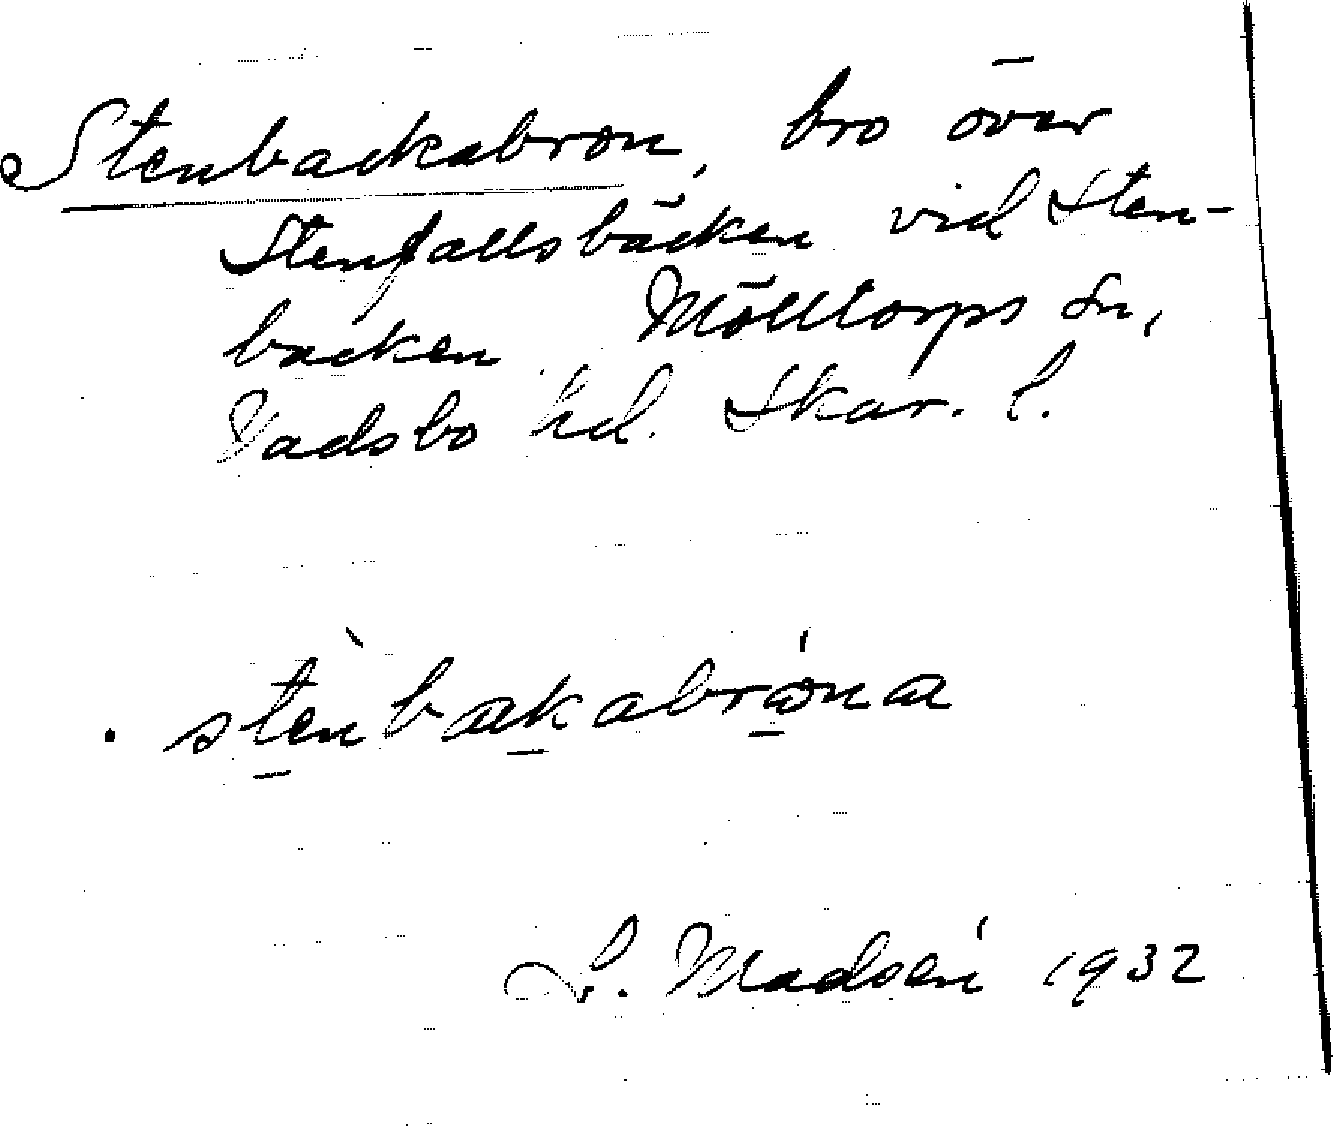 Stenbackabron, bro över
Stenfallsbäcken vid Sten-
backen Mölltorps sn,
Vadsbo hd. Skar. l.
stènbakabrò́na
L. Madsén 1932